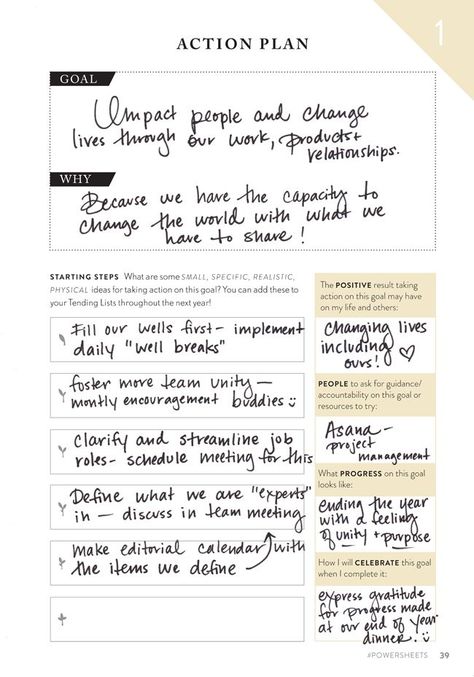 1
ACTION PLAN
GOAL
Impact people and change
lives through our work, products +
relationships.
WHY
Because we have the capacity to
change the world with what we
have to share!
STARTING STEPS What are some SMALL, SPECIFIC, REALISTIC,
PHYSICAL ideas for taking action on this goal? You can add these to
your Tending Lists throughout the next year!
Fill our wells first - implement
daily "well breaks"
foster more team unity -
montly encouragement buddies
Clarify and streamline job
roles - schedule meeting for this
Define what we are "experts"
in - discuss in team meeting
make editorial calendar with
the items we define
The POSITIVE result taking
action on this goal may have
on my life and others:
changing lives
including
ours! ♡
PEOPLE to ask for guidance/
accountability on this goal or
resources to try:
Asana -
project
management
What PROGRESS on this goal
looks like:
ending the year
with a feeling
of unity + purpose
How I will CELEBRATE this goal
when I complete it:
express gratitude
for progress made
at our end of year
dinner.
#POWERSHEETS 39